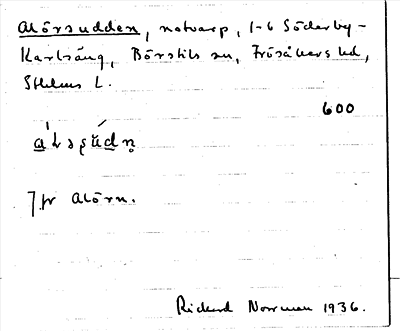 Alörsudden, notvarp, 1-6 Söderby-
Karlsäng, Börstils sn, Frösåkers hd,
Sthlms L.
600
7 fr Alörn.
Rickard Norrman 1936.